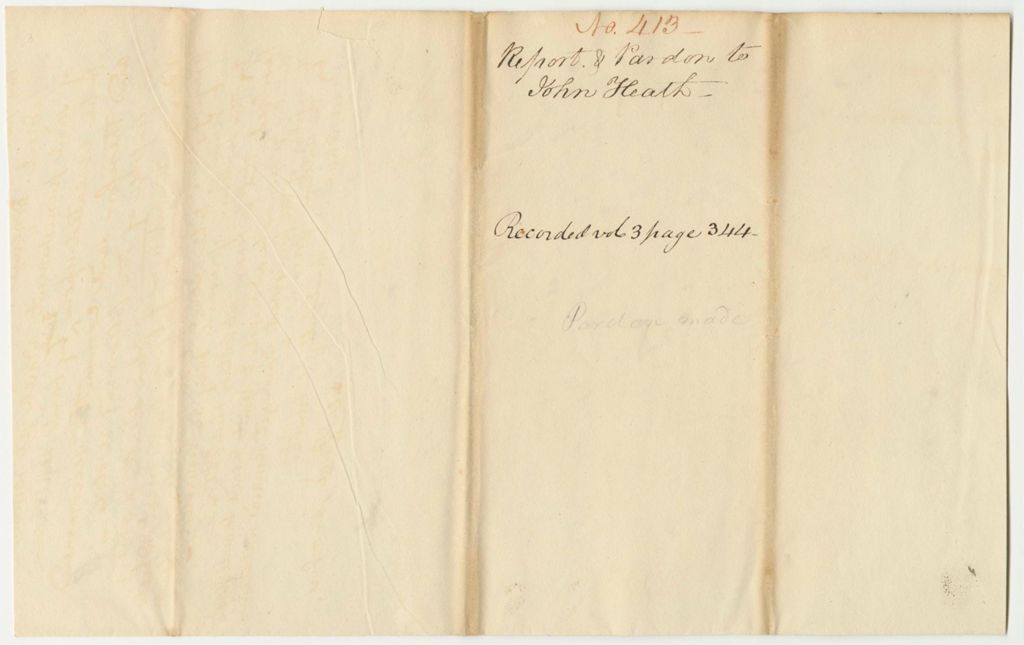 No. 413 –
Report. & Pardon to
John Heath –
Recorded vol 3 page 344 –
Pardon made